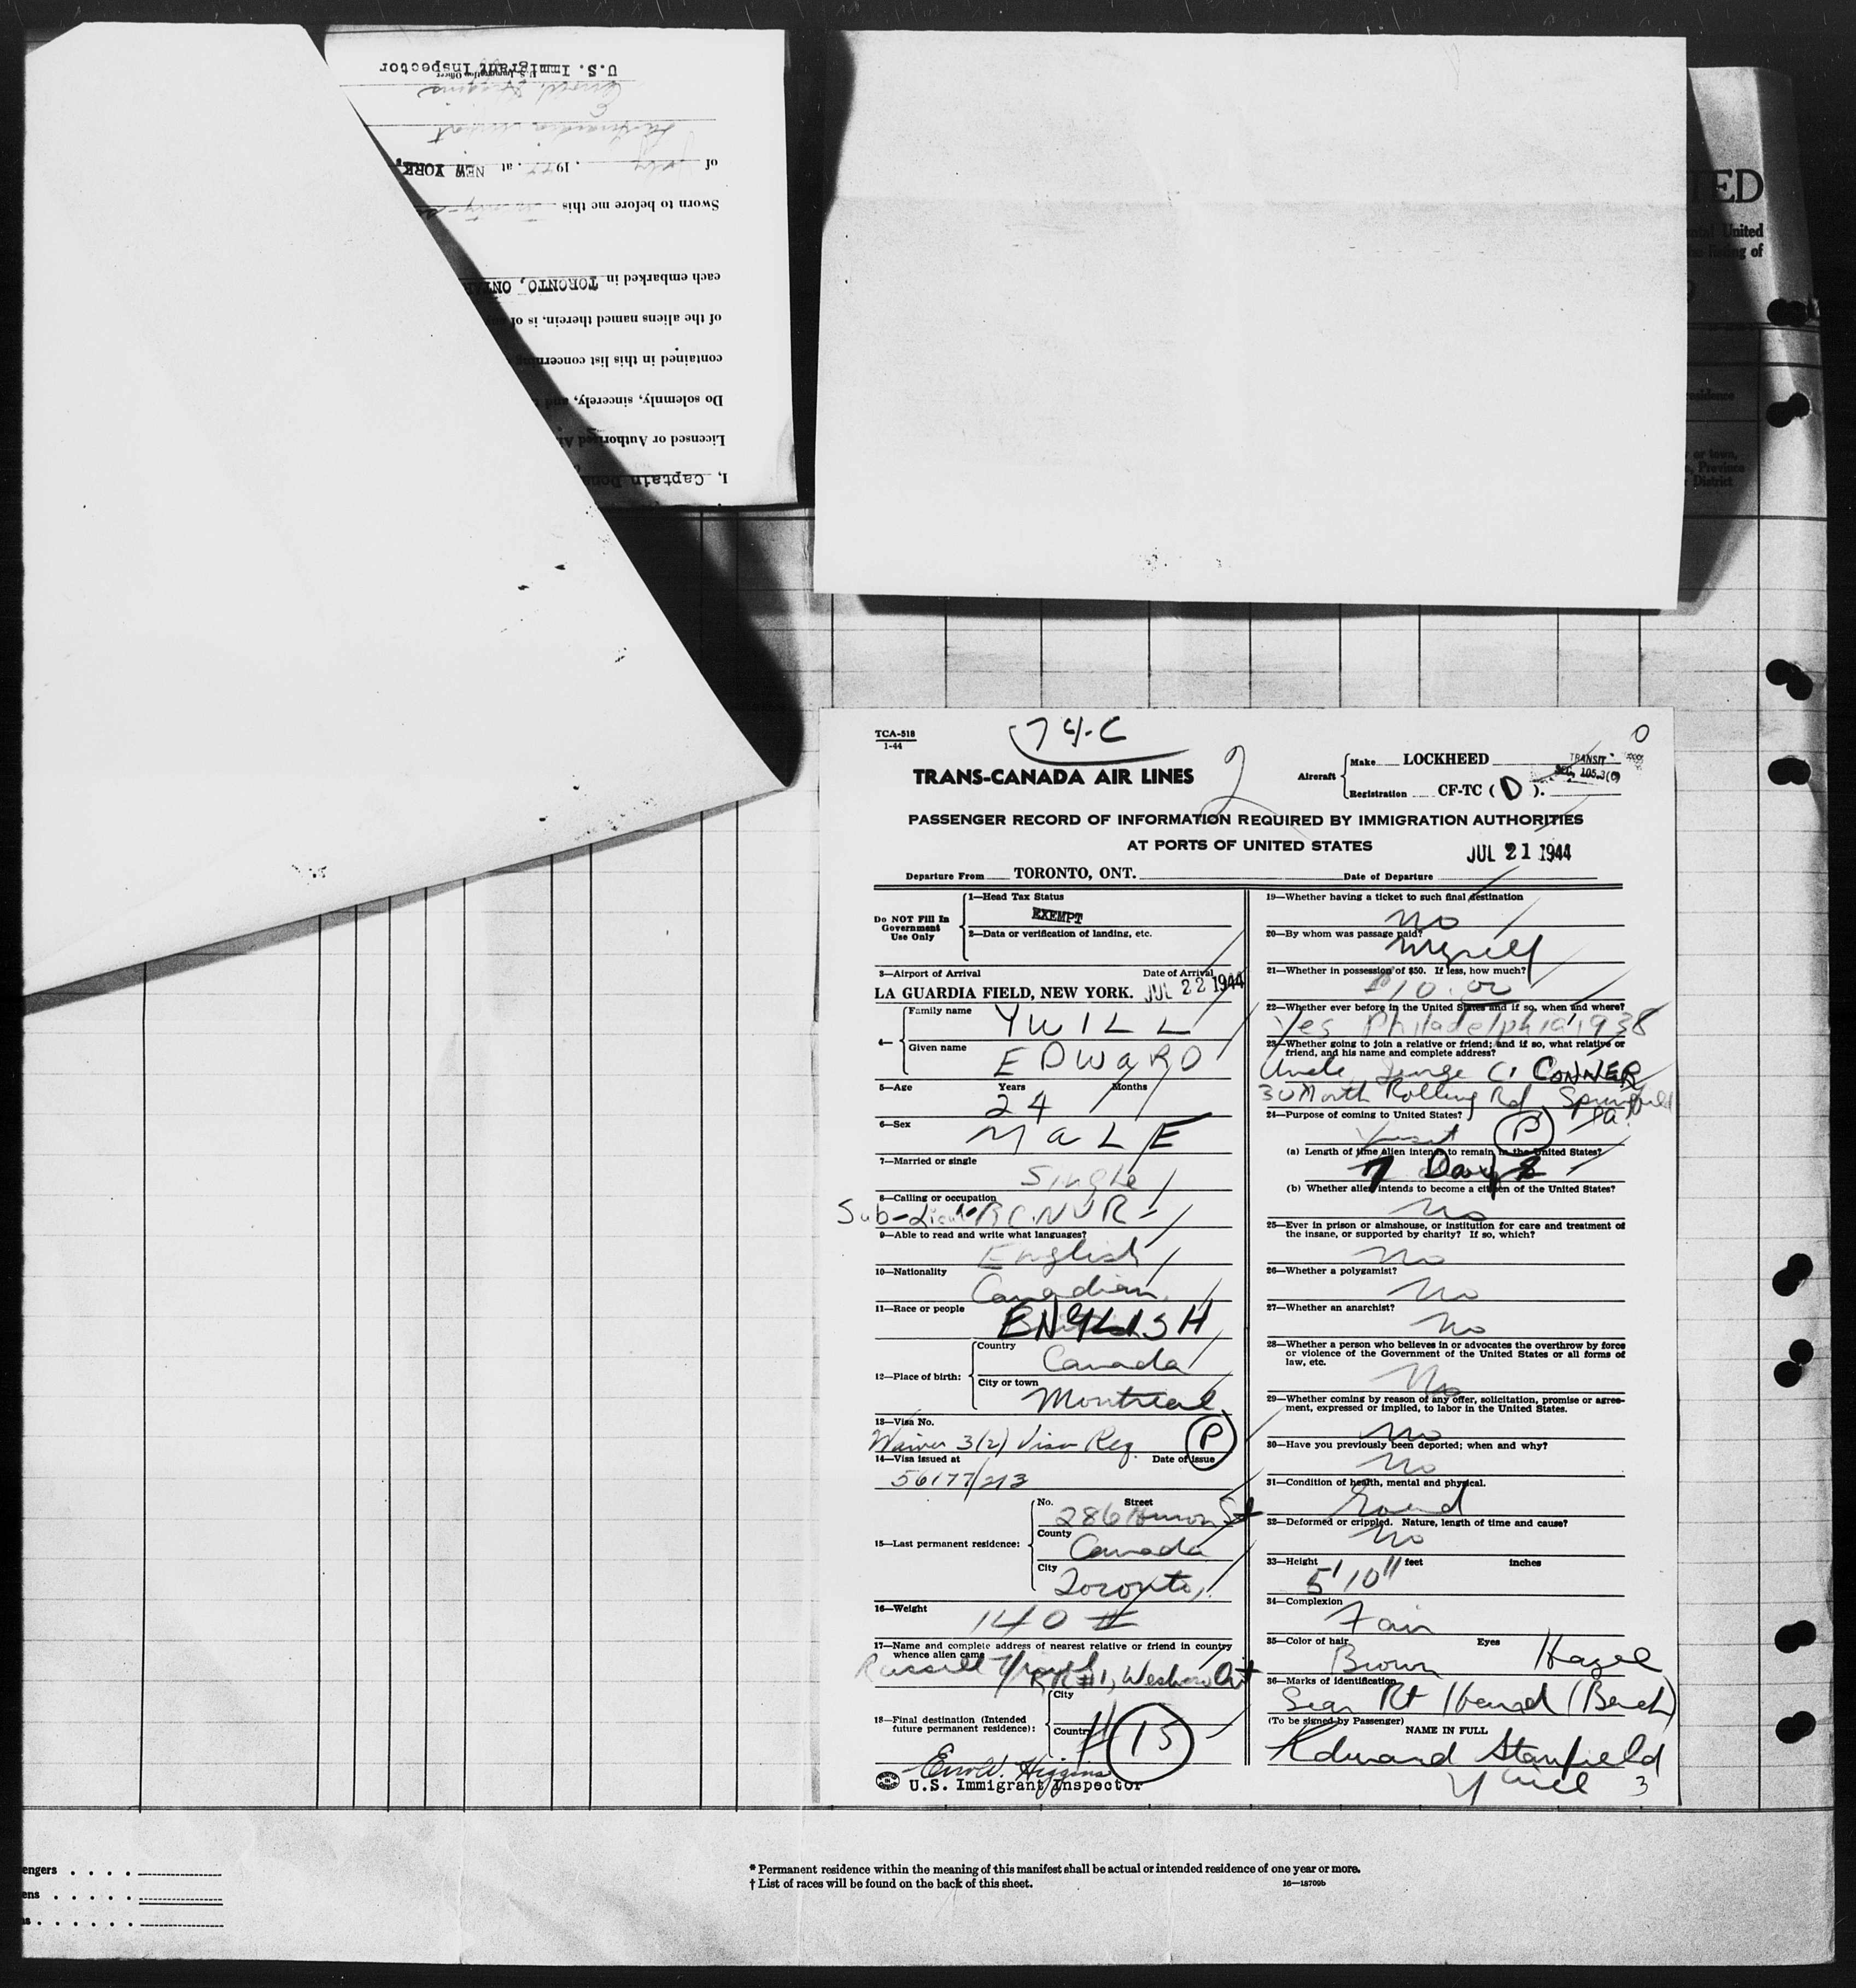 U.S. Immigrant Inspector
U.S. Immigration Officer
of July, 1944, at NEW YORK,
Sworn to before me this
each embarked in TORONTO,
of the aliens named therein, is of
contained in this list concerning
Do solemnly, sincerely, and
Licensed or Authorized
I, Captain
ED
United
listing of
residence
or town,
Province
District
TCA-518
1-44
74-C
2
0
TRANS-CANADA AIR LINES
Aircraft
Make LOCKHEED
Registration CF-TC ( D ).
TRANSIT
SEC. 105.3(c)
PASSENGER RECORD OF INFORMATION REQUIRED BY IMMIGRATION AUTHORITIES
AT PORTS OF UNITED STATES
JUL 21 1944
Departure From TORONTO, ONT.
Date of Departure
Do NOT Fill In
Government
Use Only
1—Head Tax Status
EXEMPT
2—Data or verification of landing, etc.
3—Airport of Arrival
Date of Arrival
LA GUARDIA FIELD, NEW YORK. JUL 22 1944
4—
Family name YWILL
Given name EDWARD
5—Age Years Months
24
6—Sex
MALE
7—Married or single
Single
8—Calling or occupation
Sub-Lieut RCNVR
9—Able to read and write what languages?
English
10—Nationality
Canadian
11—Race or people
ENGLISH
12—Place of birth:
Country
Canada
City or town
Montreal
13—Visa No.
Waiver 3(2) Visa Reg. P
14—Visa issued at Date of issue
56177/213
15—Last permanent residence:
No. Street
286 Huron St
County
Canada
City
Toronto,
16—Weight
140 #
17—Name and complete address of nearest relative or friend in country
whence alien came
Russell
RR #1, Ont
18—Final destination (Intended
future permanent residence):
City
Country
15
Errol W. Higgins
U.S. Immigrant Inspector
19—Whether having a ticket to such final destination
no
20—By whom was passage paid?
Myself
21—Whether in possession of $50. If less, how much?
$10.00
22—Whether ever before in the United States and if so, when and where?
Yes Philadelphia 1938
23—Whether going to join a relative or friend; and if so, what relative or
friend, and his name and complete address?
Uncle C. CONNER
30 North Rolling Rd, Springfield
Pa.
24—Purpose of coming to United States?
Visit P
(a) Length of time alien intends to remain in the United States?
7 Days
(b) Whether alien intends to become a citizen of the United States?
No
25—Ever in prison or almshouse, or institution for care and treatment of
the insane, or supported by charity? If so, which?
No
26—Whether a polygamist?
No
27—Whether an anarchist?
No
28—Whether a person who believes in or advocates the overthrow by force
or violence of the Government of the United States or all forms of
law, etc.
No
29—Whether coming by reason of any offer, solicitation, promise or agree-
ment, expressed or implied, to labor in the United States.
No
30—Have you previously been deported; when and why?
No
31—Condition of health, mental and physical.
Good
32—Deformed or crippled. Nature, length of time and cause?
No
33—Height feet inches
5' 10"
34—Complexion
Fair
35—Color of hair Eyes
Brown Hazel
36—Marks of identification
Scar Rt Hand (Back)
(To be signed by Passenger) NAME IN FULL
Edward Stanfield
Ywill 3
engers
ens
* Permanent residence within the meaning of this manifest shall be actual or intended residence of one year or more.
† List of races will be found on the back of this sheet.
16—18709b